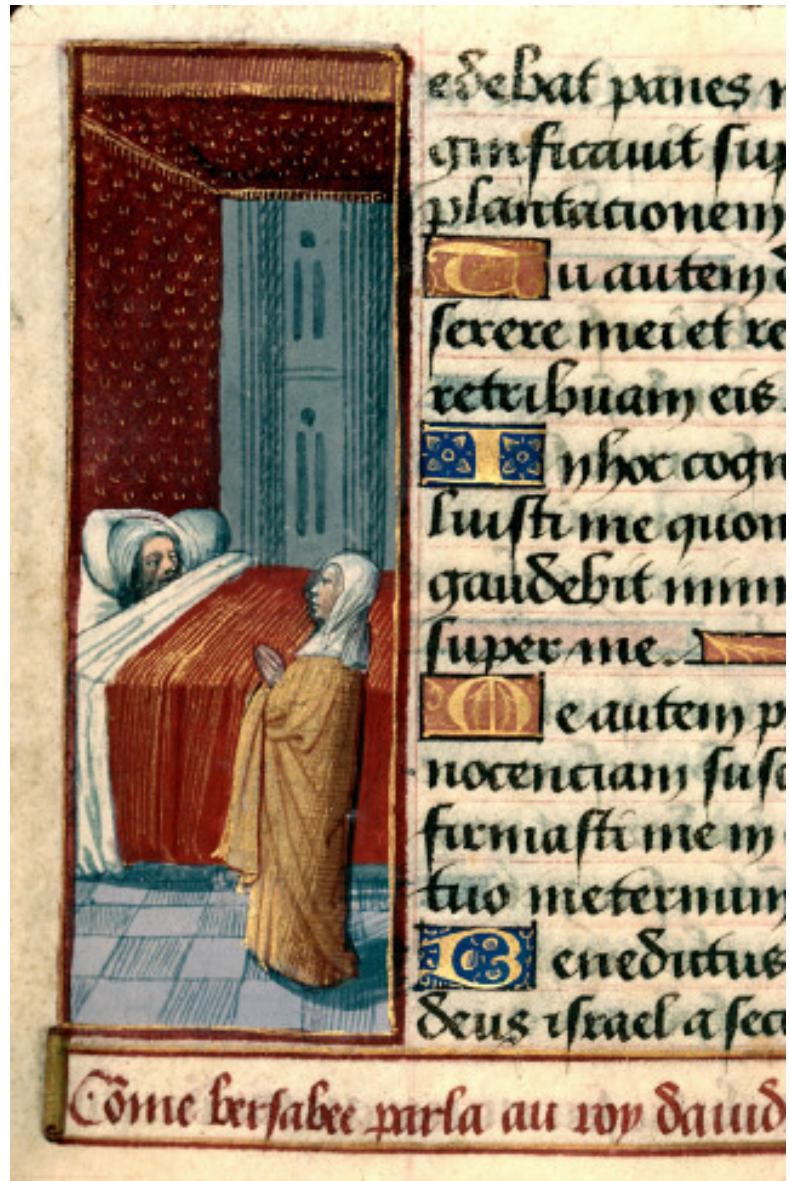 edebat panes m
gnificauit sup
plantacionem
Tu autem d
serere mei et re
retribuam eis.
In hoc cogn
luisti me quon
gaudebit inim
super me.
Me autem p
nocenciam susc
firmasti me in
tuo in eternum
Benedictus
deus israel a sec
Cõme bersabee parla au roy dauid